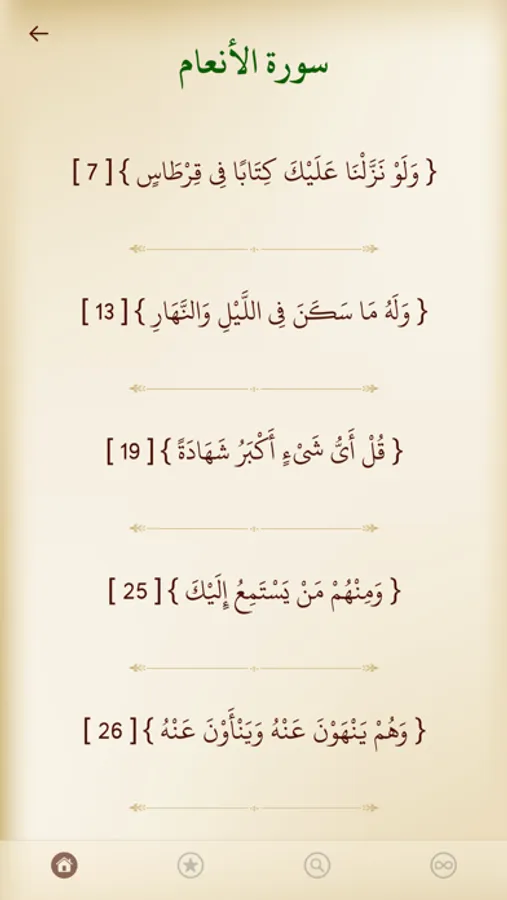 سورة الأنعام
{ وَلَوْ نَزَّلْنَا عَلَيْكَ كِتَابًا فِى قِرْطَاسٍ } [ 7 ]
{ وَلَهُ مَا سَكَنَ فِى اللَّيْلِ وَالنَّهَارِ } [ 13 ]
{ قُلْ أَىُّ شَىْءٍ أَكْبَرُ شَهَادَةً } [ 19 ]
{ وَمِنْهُمْ مَنْ يَسْتَمِعُ إِلَيْكَ } [ 25 ]
{ وَهُمْ يَنْهَوْنَ عَنْهُ وَيَنْأَوْنَ عَنْهُ } [ 26 ]